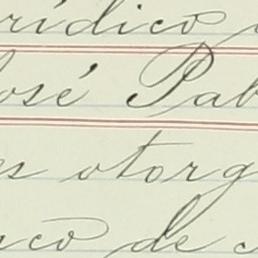 rídico
José Pab
es otorg
sco de